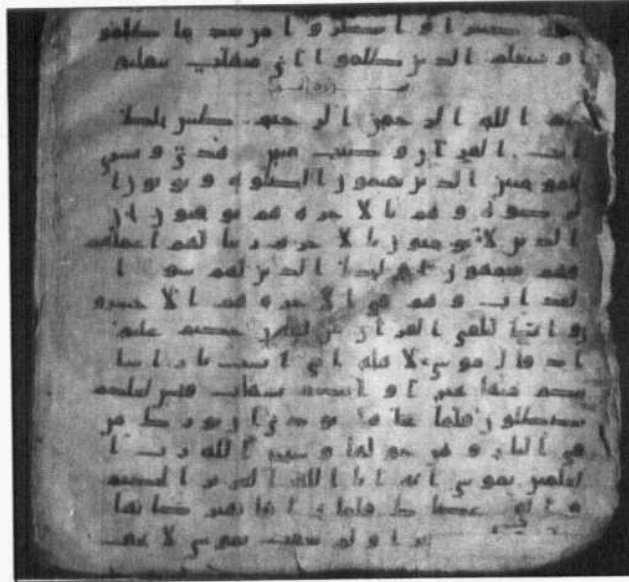 كثيرا وانتصروا من بعد ما ظلموا
وسيعلم الذين ظلموا اي منقلب ينقلبو
بسم الله الرحمن الرحيم طس تلك
ايت القران وكتب مبين هدى وبشرى
للمومنين الذين يقيمون الصلوه ويوتون ا
لزكوه وهم بالاخره هم يوقنون ان
الذين لا يومنون بالاخره زينا لهم اعملهم
فهم يعمهون اوليك الذين لهم سو ا
لعذاب وهم في الاخره هم الاخسرو
ن وانك لتلقى القران من لدن حكيم عليم
اذ قال موسى لاهله اني انست نارا سا
تيكم منها بخبر او اتيكم بشهاب قبس لعلكم
تصطلون فلما جاها نودي ان بورك من
في النار ومن حولها وسبحن الله رب ا
لعلمين يموسى انه انا الله العزيز الحكيم
والق عصاك فلما راها تهتز كانها
را ولم يعقب يموسى لا تخف